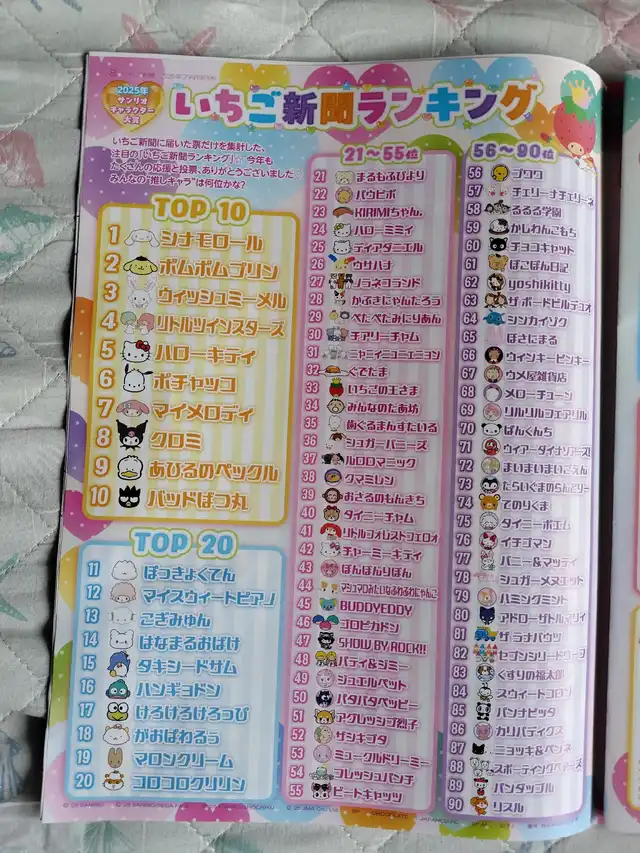 2025年
サンリオ
キャラクター
大賞
いちご新聞ランキング
いちご新聞に届いた票だけを集計した、
注目の「いちご新聞ランキング」☆ 今年も
たくさんの応援と投票、ありがとうございました
みんなの"推しキャラ"は何位かな?
TOP 10
1 シナモロール
2 ポムポムプリン
3 ウィッシュミーメル
4 リトルツインスターズ
5 ハローキティ
6 ポチャッコ
7 マイメロディ
8 クロミ
9 あひるのペックル
10 バッドばつ丸
TOP 20
11 ぽっきょくてん
12 マイスウィートピアノ
13 こぎみゅん
14 はなまるおばけ
15 タキシードサム
16 ハンギョドン
17 けろけろけろっぴ
18 がおぱわるぅ
19 マロンクリーム
20 コロコロクリリン
21〜55位
21 まるもふびより
22 パウピポ
23 KIRIMIちゃん
24 ハローミミィ
25 ディアダニエル
26 ウサハナ
27 ノラネコランド
28 かぶきにゃんたろう
29 ぺたぺたみにりあん
30 チアリーチャム
31 ニャニィニュニェニョン
32 ぐでたま
33 いちごの王さま
34 みんなのたあ坊
35 歯ぐるまんすたいる
36 シュガーバニーズ
37 ルロロマニック
38 クマミレン
39 おさるのもんきち
40 タイニーチャム
41 リトルフォレストフェロォ
42 チャーミーキティ
43 ぼんぼんりぼん
44 マシュマロみたいなふわふわにゃんこ
45 BUDDYEDDY
46 ゴロピカドン
47 SHOW BY ROCK!!
48 パティ&ジミー
49 ジュエルペット
50 パタパタペッピー
51 アグレッシブ烈子
52 ザシキブタ
53 ミュークルドリーミー
54 フレッシュパンチ
55 ビートキャッツ
56〜90位
56 プワワ
57 チェリーナチェリーネ
58 るるる学園
59 かしわんこもち
60 チョコキャット
61 ぽこぽん日記
62 yoshikitty
63 ザ ボードビルデュオ
64 シンカイゾク
65 ぼさにまる
66 ウィンキーピンキー
67 ウメ屋雑貨店
68 メローチューン
69 リルリルフェアリル
70 ぱんくんち
71 ウィアーダイナソアーズ!
72 まいまいまいごえん
73 たらいぐまのらんどりー
74 てのりくま
75 タイニーポエム
76 イチゴマン
77 バニー&マッティ
78 シュガーメヌエット
79 ハミングミント
80 アドローザトルマリィ
81 ザ ラナバウツ
82 セブンシリードワーフ
83 くすりの福太郎
84 スウィートコロン
85 パンナピッタ
86 カリパティクス
87 ニョッキ&ペンネ
88 スポーティングベアーズ
89 パンタップル
90 リスル